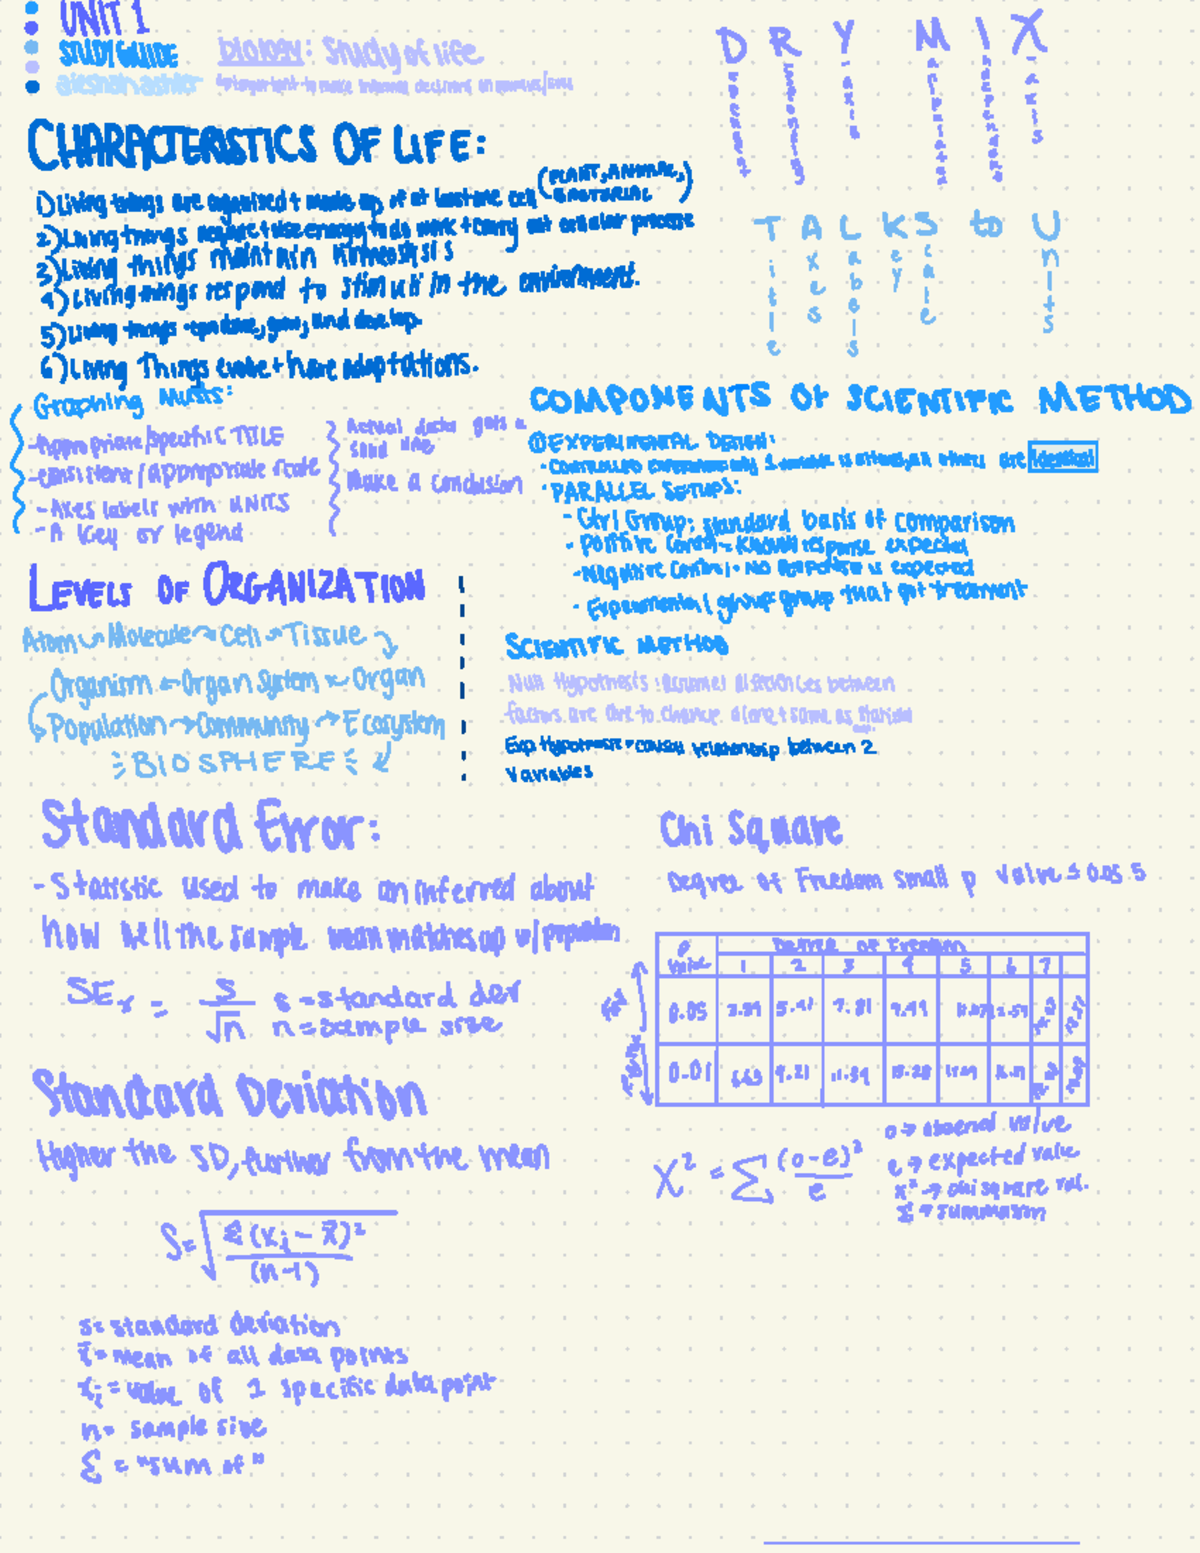 UNIT 1
STUDY GUIDE
biology: Study of life
*important to make informed decisions on
D R Y M I X
Dependent
Responding
Y-axis
Manipulated
Independent
X-axis
CHARACTERISTICS OF LIFE:
1) Living things are organized + made up of at least one cell (PLANT, ANIMAL, BACTERIAL)
2) Living things acquire + use energy to do work + carry out cellular processe
3) Living things maintain homeostasis
4) Living things respond to stimuli in the environment.
5) Living things reproduce, grow, and develop.
6) Living Things evolve + have adaptations.
TALKS to U
Title
Axes
Labels
Key
Scale
Units
Graphing Musts:
-Appropriate/specific TITLE
-consistent/appropriate scale
-Axes labels with UNITS
-A key or legend
Actual data gets a
solid line
Make a conclusion
COMPONENTS OF SCIENTIFIC METHOD
① EXPERIMENTAL DESIGN:
• CONTROLLED experiment only 1 variable is altered, all others are identical
• PARALLEL SETUPS:
- Ctrl Group: standard basis of comparison
• Positive Control = known response expected
-Negative Control • NO Response is expected
• Experimental group: group that got treatment
LEVELS OF ORGANIZATION
Atom → Molecule → Cell → Tissue →
Organism ← Organ System ← Organ
→ Population → Community → Ecosystem
BIOSPHERE
SCIENTIFIC METHOD
Null Hypothesis: assumes differences between
factors are due to chance alone + same as
Exp Hypothesis • causal relationship between 2
variables
Standard Error:
- Statistic used to make an inferred about
how well the sample mean matches up w/ population
SEx = s/√n s = standard dev
n = sample size
Chi Square
Degree of Freedom small p value ≤ 0.05 5
P Value Degree of Freedom
1 2 3 4 5 6 7
0.05 3.84 5.99 7.81 9.49 11.07 12.59
0.01 6.63 9.21 11.34 13.28 15.09
X² = Σ (o-e)²/e
o → observed value
e → expected value
x² → chi square val.
Σ → summation
Standard Deviation
Higher the SD, further from the mean
S = √ Σ(xi - x̄)²/(n-1)
s = standard deviation
x̄ = mean of all data points
xi = value of 1 specific data point
n = sample size
Σ = "sum of"